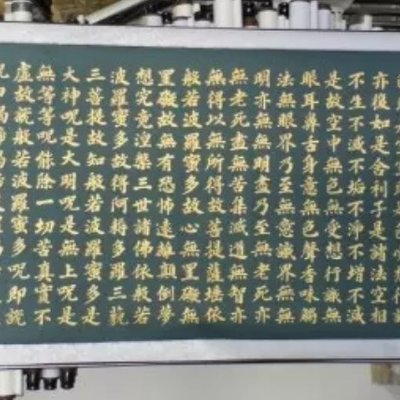 亦復如是舍利子是諸法空相
不生不滅不垢不淨不增不減
是故空中無色無受想行識無
眼耳鼻舌身意無色聲香味觸
法無眼界乃至無意識界無無
明亦無無明盡乃至無老死亦
無老死盡無苦集滅道無智亦
無得以無所得故菩提薩埵依
般若波羅蜜多故心無罣礙無
罣礙故無有恐怖遠離顛倒夢
想究竟涅槃三世諸佛依般若
波羅蜜多故得阿耨多羅三藐
三菩提故知般若波羅蜜多是
大神呪是大明呪是無上呪是
無等等呪能除一切苦真實不
虛故說般若波羅蜜多呪即說